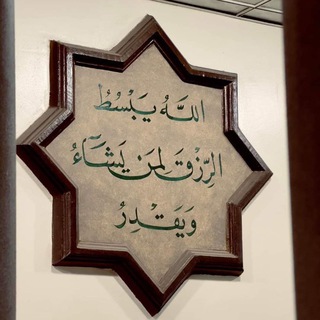 اللَّهُ يَبْسُطُ
الرِّزْقَ لِمَن يَشَاءُ
وَيَقْدِرُ